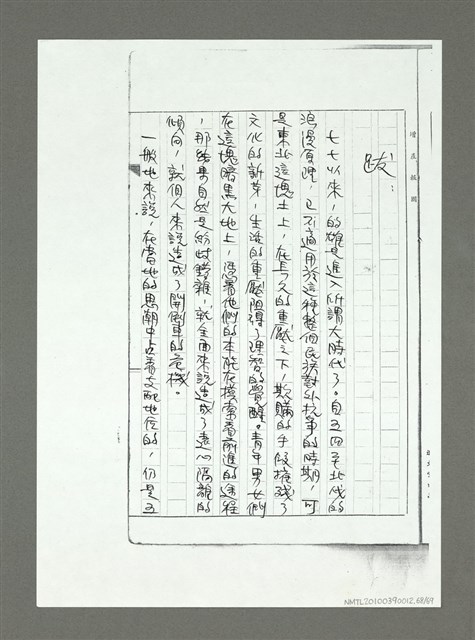 跋：
七七以來，的確是進入所謂大時代了。自五四至北伐的
浪漫原理，已不適用於這種整個民族對外抗爭的時期，可
是東北這塊土上，在長久的重壓之下，欺瞞的手段摧殘了
文化的新芽，生活的重壓阻碍了理智的覺醒。青年男女們
在這塊暗黑大地上，憑著他們的本能在摸索着前進的途程
，那結果自然是紛歧錯雜，就全面來說造成了遠心隔離的
傾向，就個人來說造成了開倒車的危機。
一般地來說，在當地的思潮中占着支配地位的，仍是五
NMTL20100390012.68/69